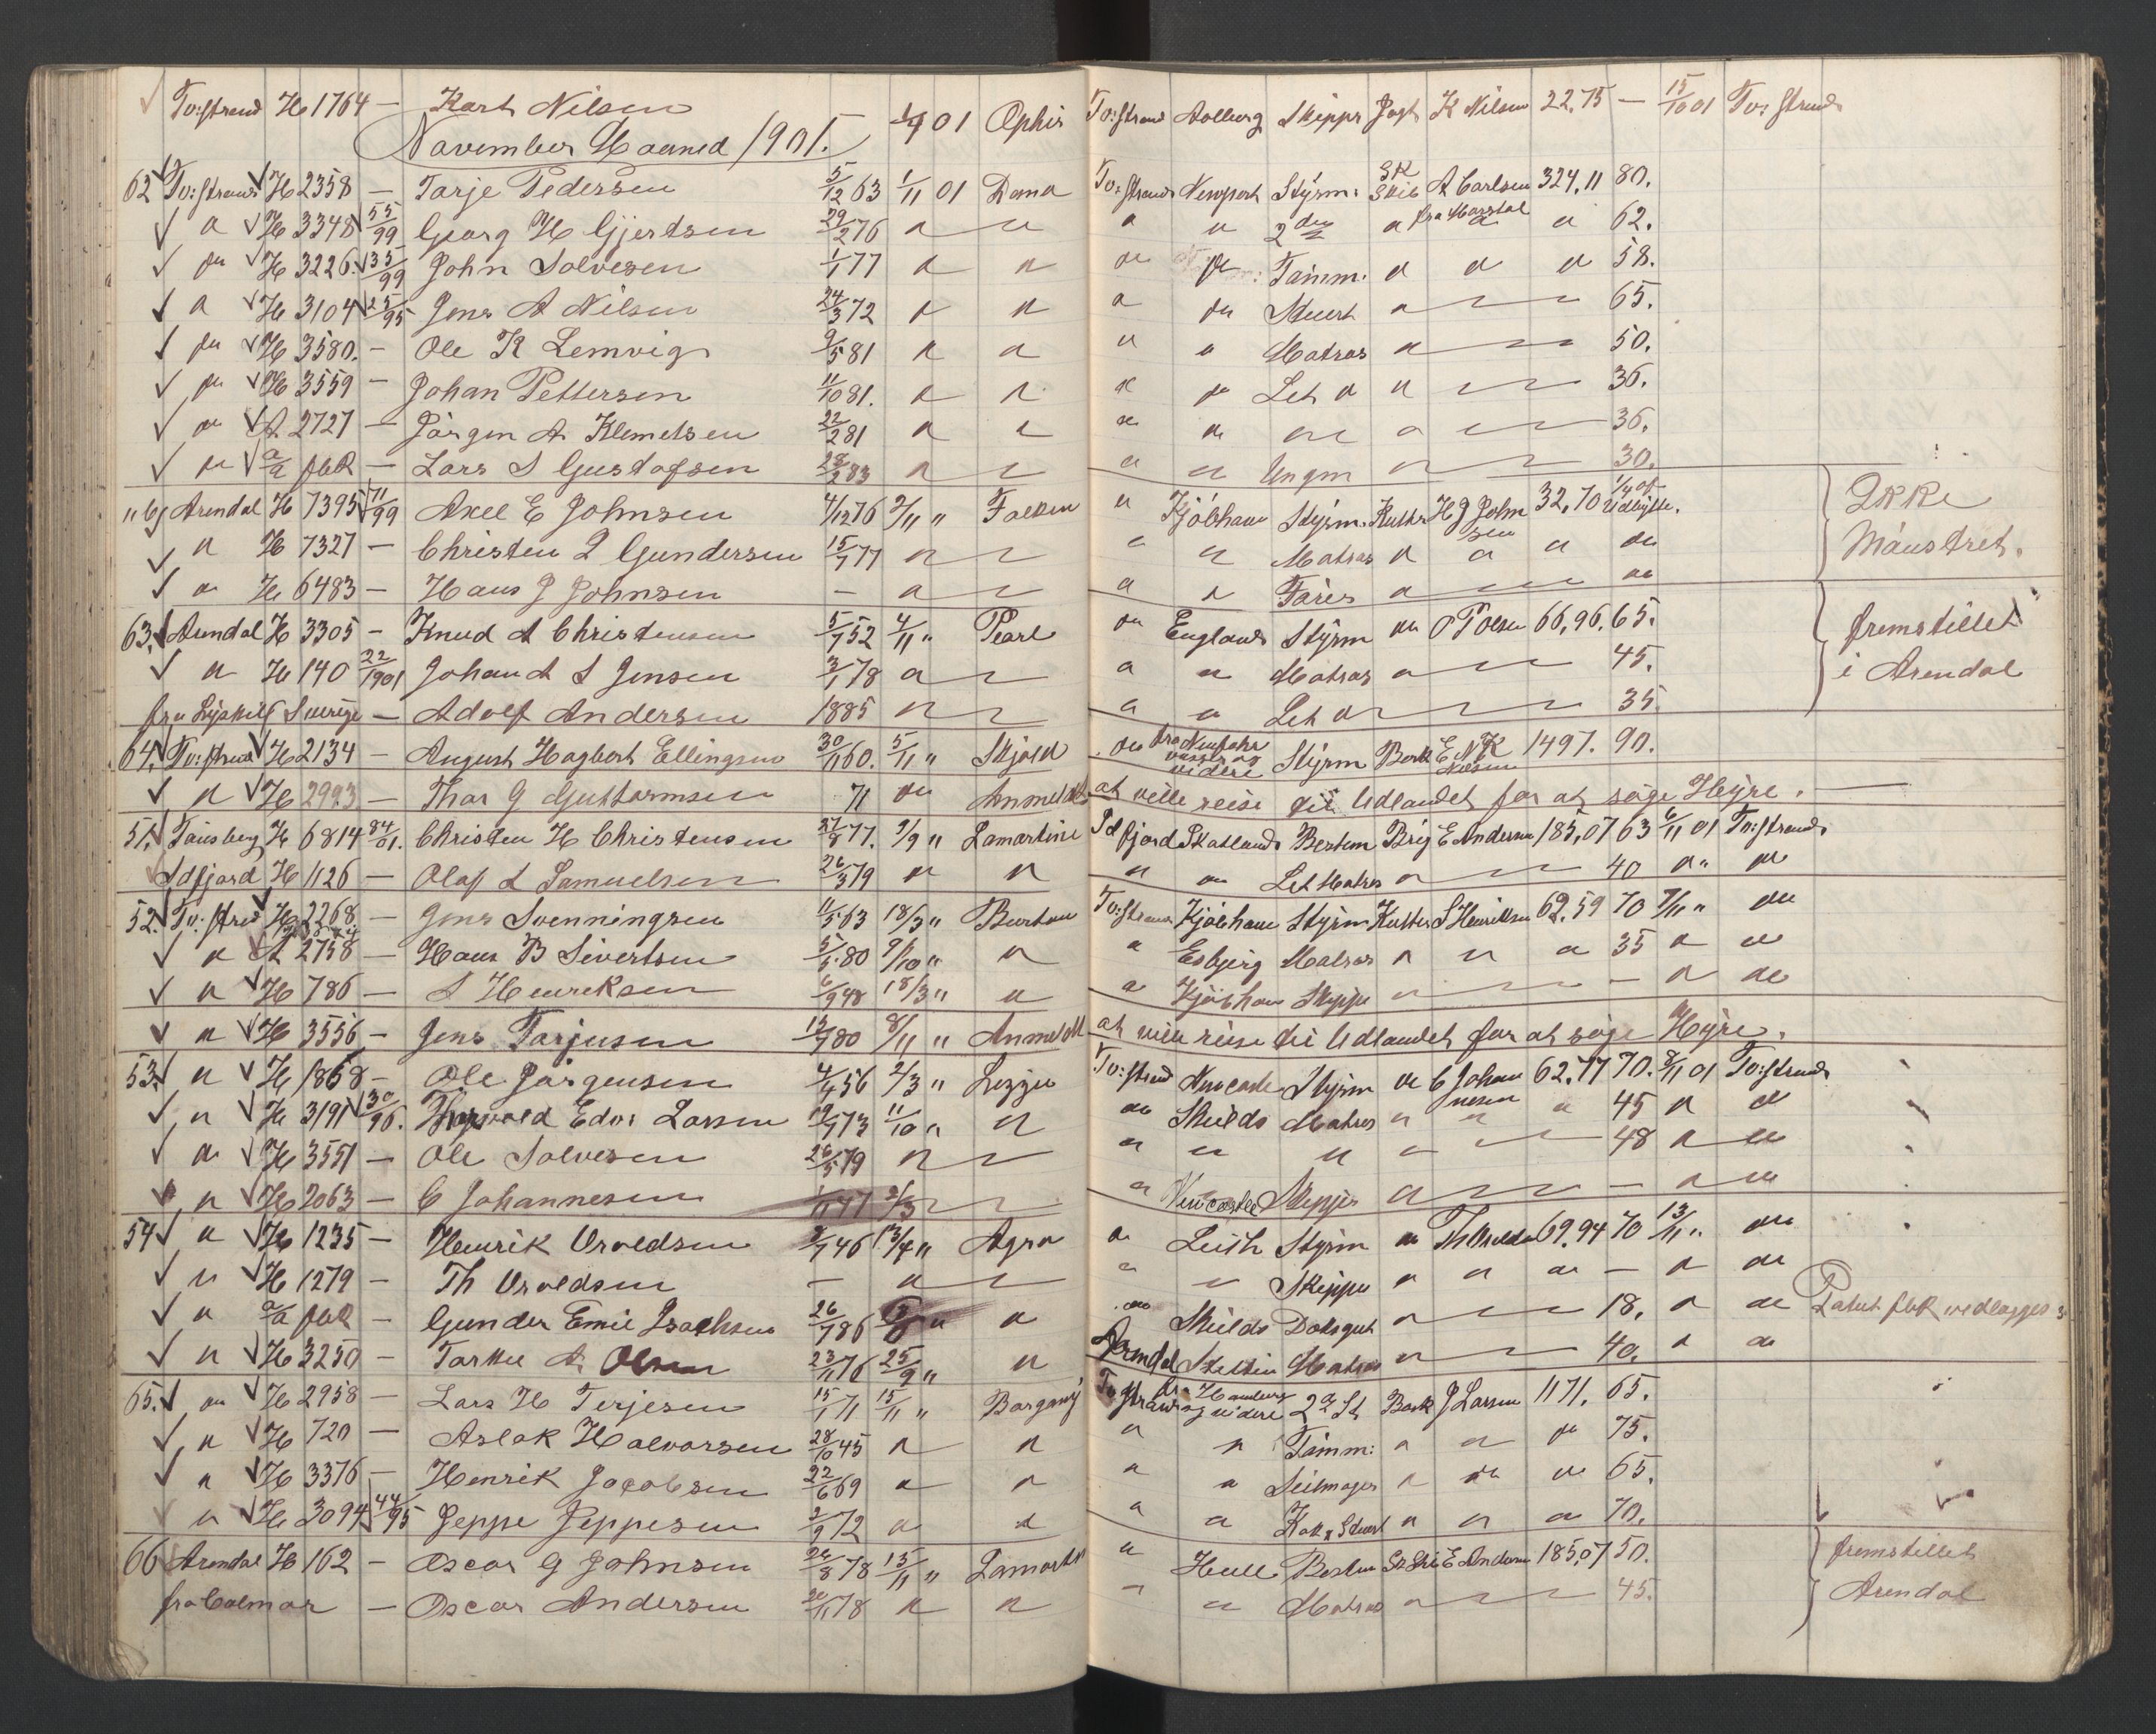 Tv:strand H 1764 — Karl Nilsen 1/9 01 Ophir Tv:strand Aalborg Skipper Jagt K Nilsen 22,75 — 15/10 01 Tv:strand
November Maaned 1901.
62 Tv:strand H 2358 — Tarje Pedersen 5/12 63 1/11 01 Dana Tv:strand Newport Styrm. SK Skib A Carlsen 324,11 80.
" H 3348 55/99 Georg H Gjertsen 29/2 76 " " " " 2den " fra Marstal " " 62.
" H 3226. 35/99 John Solvesen 1/1 77 " " " " Tømm. " " " 58.
" H 3104 25/95 Jens A Nilsen 24/3 72 " " " " Stuert " 65.
" H 3580. — Ole K Lemvig 9/5 81 " " " " Matros " 50.
" H 3559 — Johan Pettersen 11/10 81. " " " " Let " " 36.
" A 2727 — Jørgen A Klemetsen 22/2 81 " " " " " " 36.
" a/a fbk — Lars S Gustafsen 28/2 83 " " " " Ungm " 30.
Arendal H 7395 71/99 Axel E Johnsen 4/12 76 2/11 " Falken " Kjöbhavn Styrm. Kutter H J Johnsen 32,70 1/4 af Udbytte. Ikke
" H 7327 — Christen I Gundersen 15/7 77 " " " Matros " " " " Mønstret.
" H 6483 — Hans J Johnsen — " " " Fører " "
63. Arendal H 3305 — Knud A Christensen 5/7 52 4/11 " Pearl " England Styrm " O T Olsen 66,96. 65. fremstillet
" H 140 22/1901 Johan A S Jensen 3/1 78 " " " Matros " 45. i Arendal
fra Lysekil Sverige — Adolf Andersen 1885 " " " Let " 35.
64. Tv:strand H 2134 — August Hagbert Ellingsen 30/11 60. 5/11 " Skjold " fra Neufahrwasser og videre Styrm Bark E N K Nielsen 1497. 90.
" H 2993 — Thor G Guttormsen 71 " Anmeldt at ville reise til Udlandet for at söge Hyre. —
51. Tønsberg H 6814 84/01. Christen H Christensen 27/8 77. 9/9 " Lamartine Idfjord Skotland Bestem Brig E Andersen 185,07 63 6/11 01 Tv:strand
Idfjord H 1126 — Olaf L Samuelsen 26/3 79 " " " " Let Matros " 40 " " "
52. Tv:strand H 2268 — Jens Svenningsen 11/5 63 18/3 " Burton Tv:strand Kjöbhavn Styrm Kutter S Henriksen 62,59 70 7/11 " "
" A 2758 — Hans B Sivertsen 5/5 80 9/10 " " " Esbjerg Matros " " " 35 " "
" H 786 — S Henriksen 6/9 48 18/3 " " " Kjöbhavn Skipper " — " "
" H 3556 — Jens Tarjusen 13/7 80 8/11 " Anmeldt at ville reise til Udlandet for at söge Hyre.
53. " H 1868 — Ole Jørgensen 4/4 56 2/3 " Lizzie Tv:strand Newcastle Styrm " C Johannesen 62,77 70. 8/11 01 Tv:strand
" H 3191 30/96. Thorvald Edor Larsen 19/7 73 11/10 " " " Shields Matros " " " 45 " "
" H 3551 — Ole Solvesen 26/5 79 " " " " " 48 " "
" H 2063 — C Johannesen 1/11 47 2/3 " " Newcastle Skipper " — " "
54 " H 1235 — Henrik Osvoldsen 2/7 46 13/4 " Agra " Leith Styrm " Th Osvoldsen 69,94 70 13/11 " "
" H 1279 — Th Osvoldsen — " " " Skipper " " " — " "
" a/a fbk — Gunder Emil Isachsen 26/7 86 " " " Shields Doksgut " 18. " " fbk vedlægges
" H 3250 — Tarkel A Olsen 23/11 76 25/9 " " Arendal Stettin Matros " 40. " "
65. " H 2958 — Lars H Terjesen 15/1 71 15/11 " Bargany Tv:strand fra Hamburg og videre 2d St Bark J Larsen 1171. 65.
" H 720 — Aslak Halvorsen 28/10 45 " " " " Tømm: " " " 75.
" H 3376 — Henrik Jacobsen 22/6 69 " " " " Seilmager " " " 65.
" H 3094 44/95 Jeppe Jeppesen 3/9 72 " " " " Kok & Stuert " " " 70.
66 Arendal H 162 — Oscar G Johnsen 26/8 78 15/11 " Lamartine " Hull Bestm Sk Skib E Andersen 185,07 50. fremstillet
fra Calmar — Oscar Andersen 30/11 78 " " " " Matros " 45. Arendal